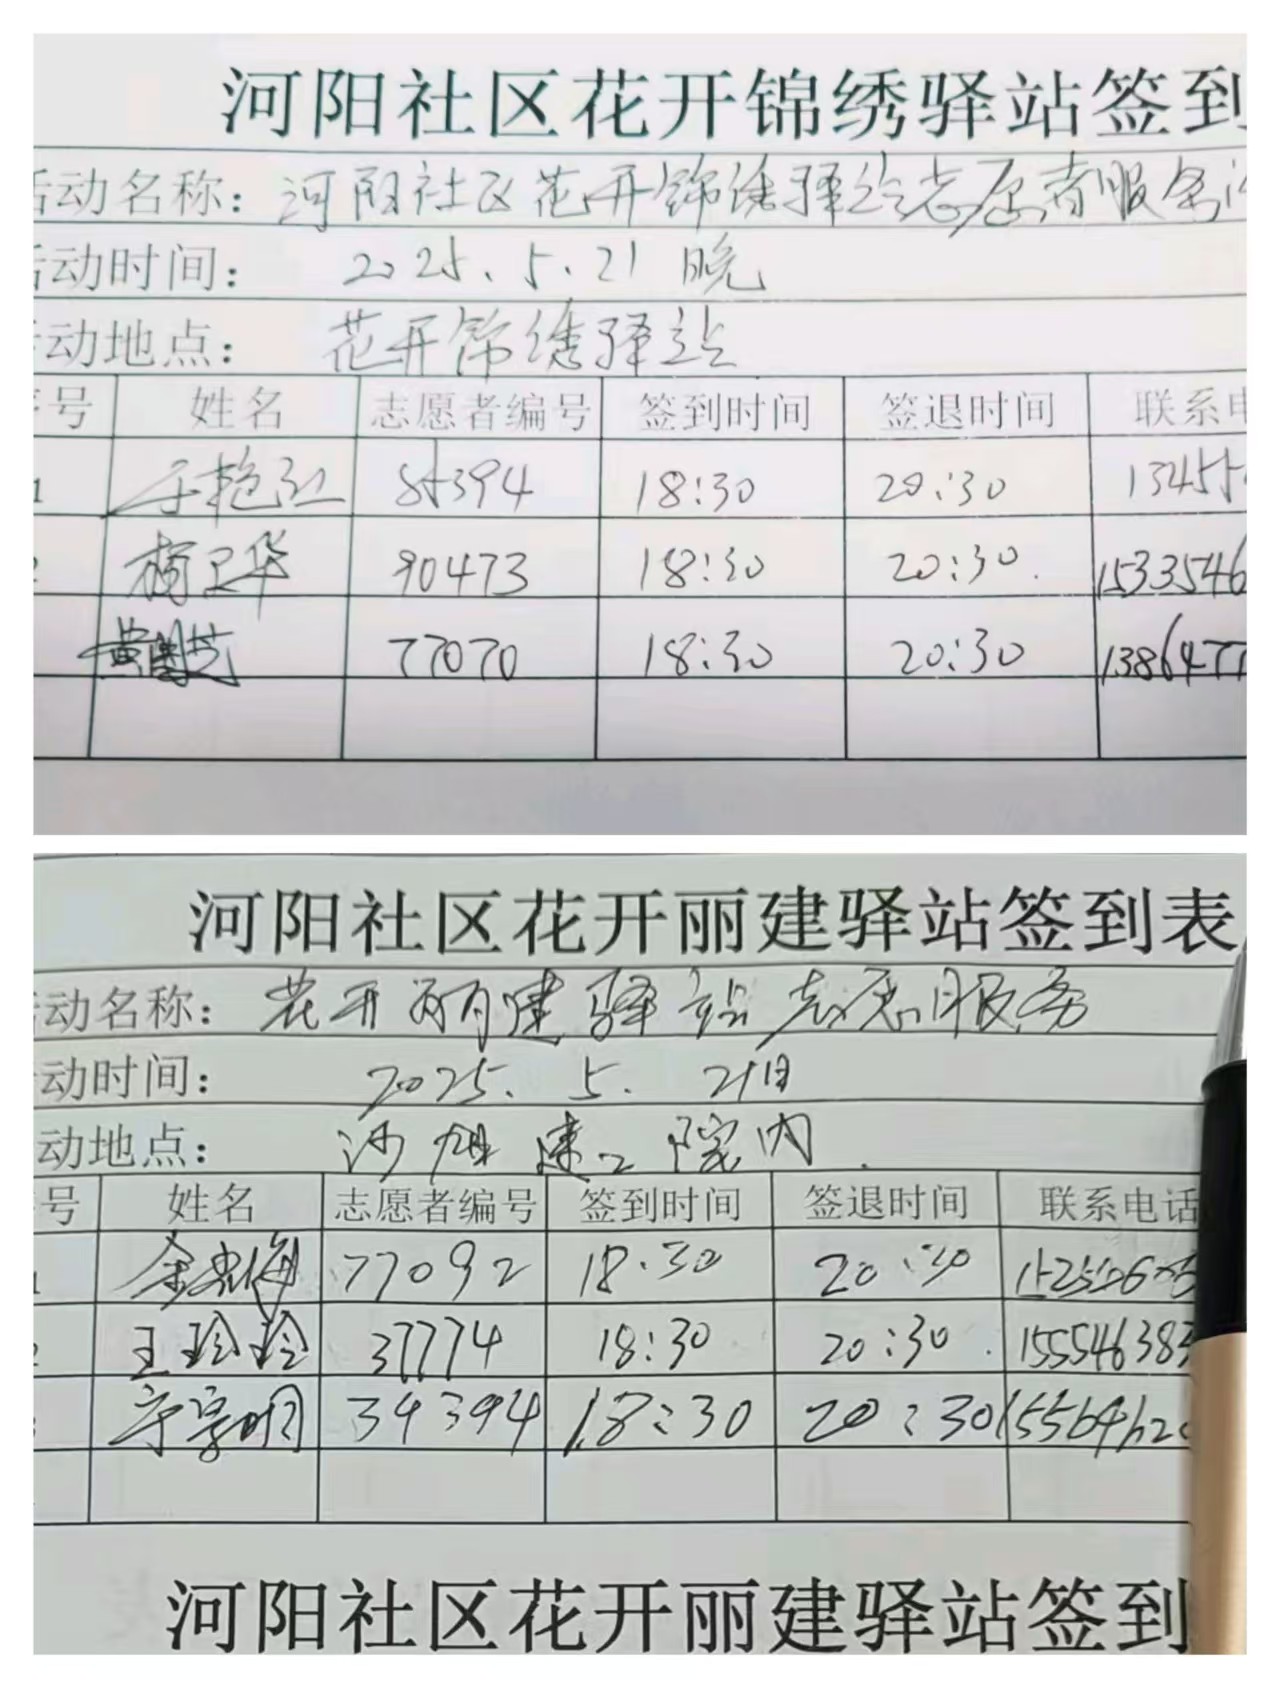 河阳社区花开锦绣驿站签到
活动名称：河阳社区花开锦绣驿站志愿者服务
活动时间：2025.5.21 晚
活动地点：花开锦绣驿站
号 姓名 志愿者编号 签到时间 签退时间 联系电
1 于艳红 85394 18:30 20:30 13455
2 杨卫华 90473 18:30 20:30. 1533546
黄围芝 77070 18:30 20:30 1386477
河阳社区花开丽建驿站签到表
活动名称：花开丽建驿站志愿服务
动时间：2025.5.21日
动地点：沙旭建工院内.
号 姓名 志愿者编号 签到时间 签退时间 联系电话
1 77092 18:30 20:30
2 王玲玲 37774 18:30 20:30. 15554638
34394 18:30 20:30
河阳社区花开丽建驿站签到